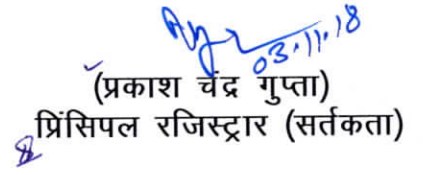 03.11.18
(प्रकाश चंद्र गुप्ता)
प्रिंसिपल रजिस्ट्रार (सर्तकता)